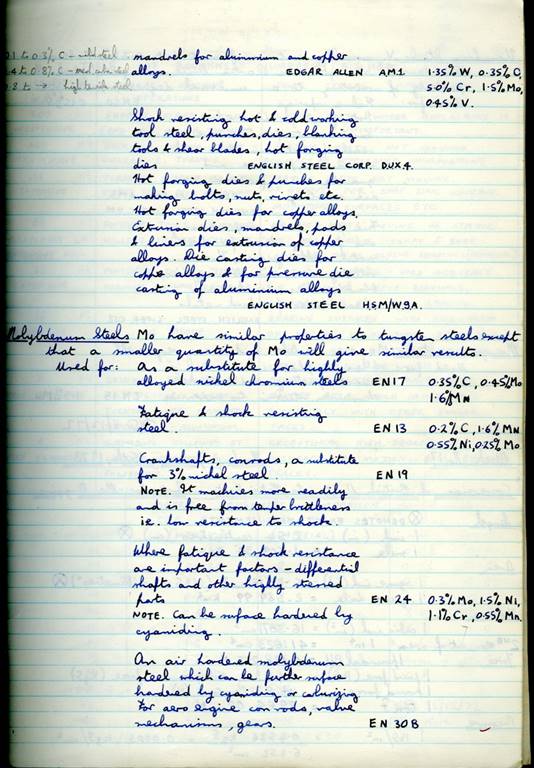 0.1 to 0.3% C - mild steel
0.4 to 0.8% C - med carbon steel
0.8 to → high tensile steel
mandrels for aluminium and copper
alloys. EDGAR ALLEN AM1 1.35% W, 0.35% C,
5.0% Cr, 1.5% Mo,
0.45% V.
Shock resisting hot & cold working
tool steel, punches, dies, blanking
tools & shear blades, hot forging
dies ENGLISH STEEL CORP. DUX4.
Hot forging dies & punches for
making bolts, nuts, rivets etc.
Hot forging dies for copper alloys.
Extrusion dies, mandrels, pads
& liners for extrusion of copper
alloys. Die casting dies for
copper alloys & for pressure die
casting of aluminium alloys
ENGLISH STEEL HSM/W9A.
Molybdenum Steels Mo have similar properties to tungsten steels except
that a smaller quantity of Mo will give similar results.
Used for: As a substitute for highly
alloyed nickel chromium steels EN17 0.35% C, 0.45% Mo
1.6% Mn
Fatigue & shock resisting
steel. EN 13 0.2% C, 1.6% Mn
0.55% Ni, 0.25% Mo
Crankshafts, conrods, a substitute
for 3% nickel steel. EN 19
NOTE. It machines more readily
and is free from temper brittleness
i.e. low resistance to shock.
Where fatigue & shock resistance
are important factors - differential
shafts and other highly stressed
parts EN 24 0.3% Mo, 1.5% Ni,
NOTE. Can be surface hardened by 1.1% Cr, 0.55% Mn.
cyaniding.
An air hardened molybdenum
steel which can be further surface
hardened by cyaniding or carburizing
For aero engine con rods, valve
mechanisms, gears. EN 30B